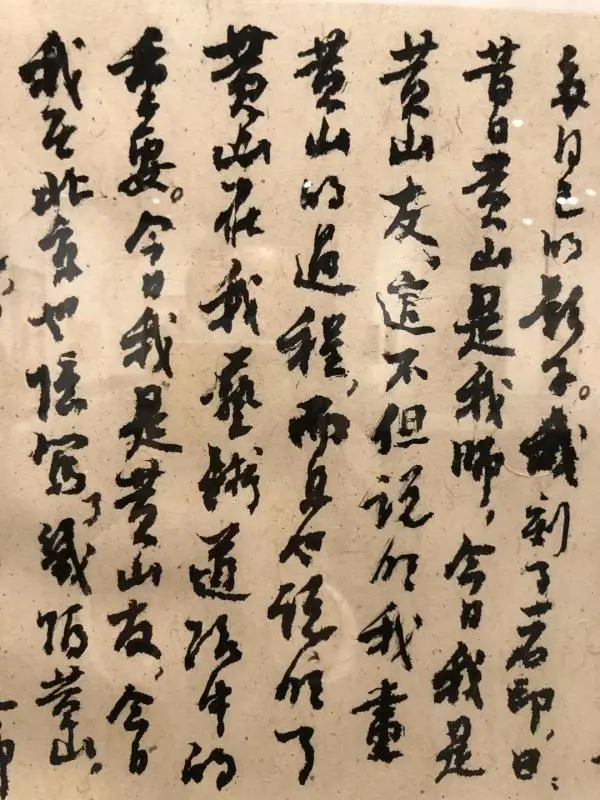 有自己的影子。我刻了一石印,曰:
昔日黄山是我师,今日我是
黄山友,这不但说明我画
黄山的过程,而且也说明了
黄山在我藝術道路中的
重要。今日我是黄山友,今日
我在北京也